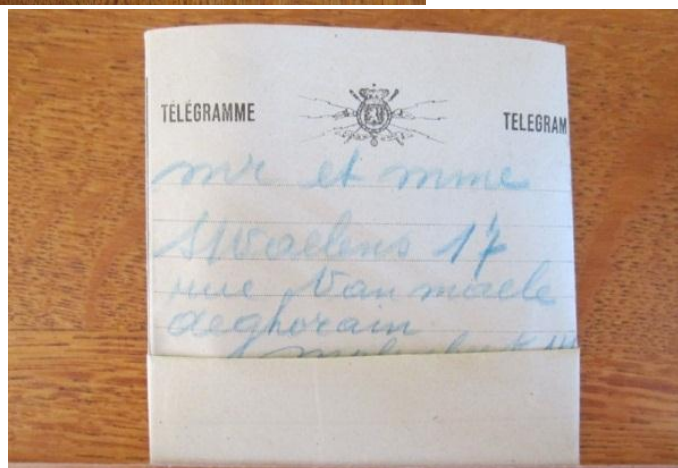 TÉLÉGRAMME TELEGRAM
mr et mme
Swaelens 17
rue Van maele
deghorain